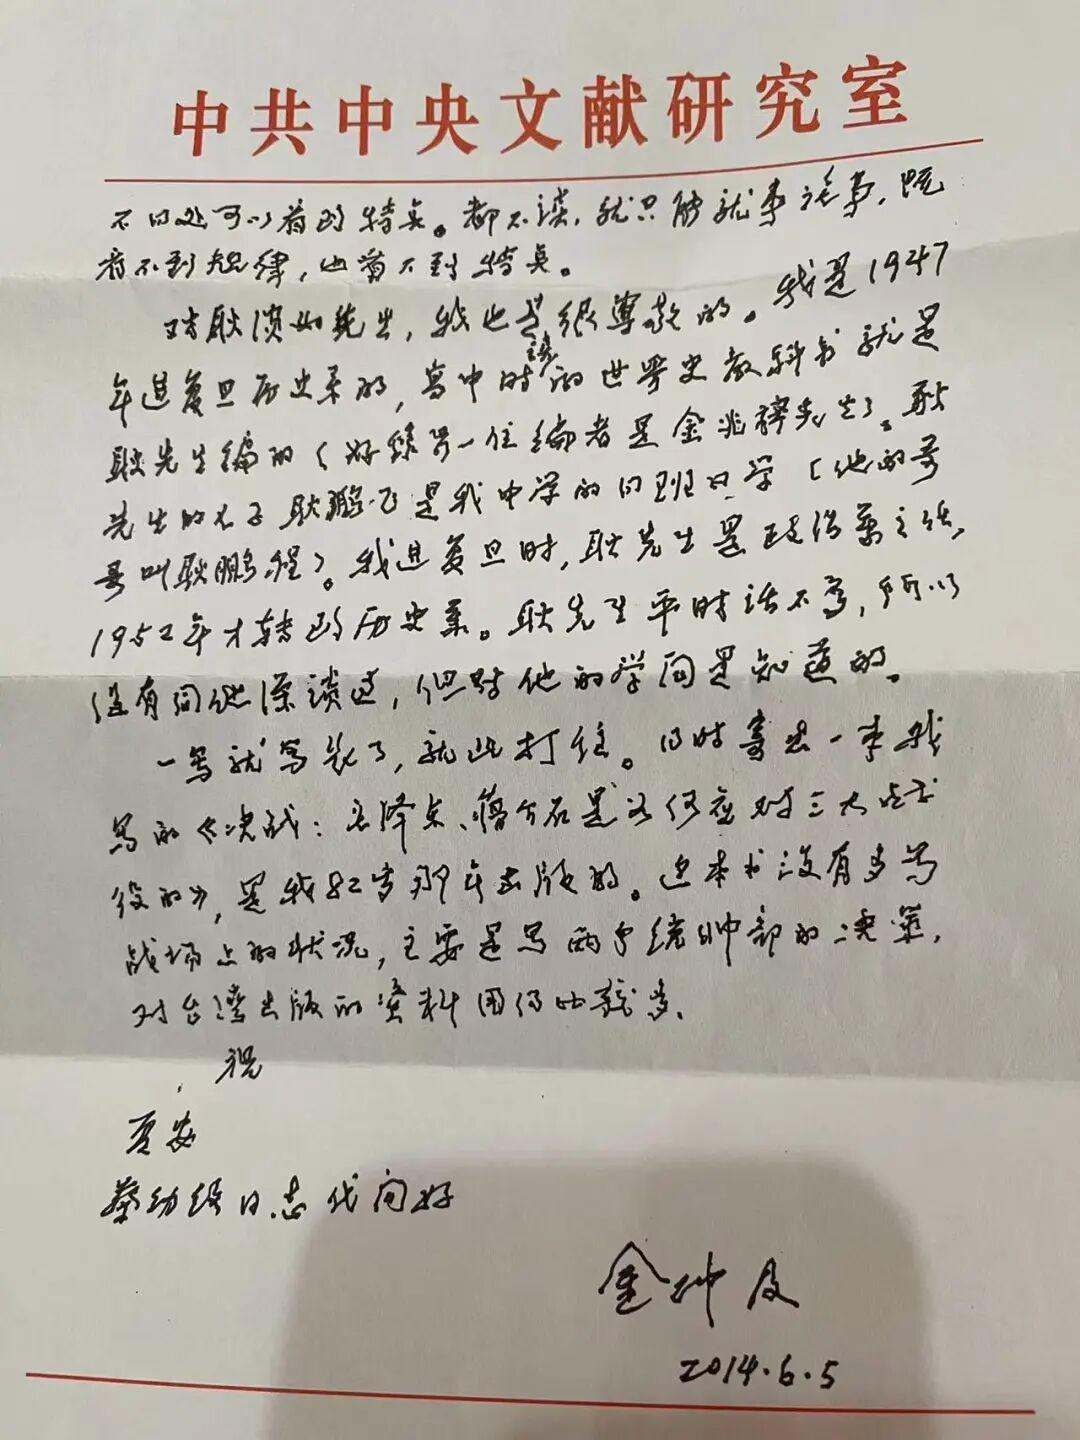 中共中央文献研究室
不同处可以看到特点。都不谈，就只能就事论事，既
看不到规律，也看不到特点。
对耿淡如先生，我也是很尊敬的。我是1947
年进复旦历史系的，高中时读的世界史教科书就是
耿先生编的（好像另一位编者是金兆梓先生）。耿
先生的公子耿鹏飞是我中学的同班同学（他的哥
哥叫耿鹏程）。我进复旦时，耿先生是政治系主任，
1952年才转到历史系。耿先生平时话不多，所以
没有同他深谈过，但对他的学问是知道的。
一写就写长了，就此打住。同时寄出一本我
写的《决战：毛泽东、蒋介石是如何应对三大战
役的》，是我82岁那年出版的。这本书没有多写
战场上的状况，主要是写两个统帅部的决策，
对台湾出版的资料用得比较多。
祝
夏安
蔡幼纹同志代问好
金冲及
2014.6.5